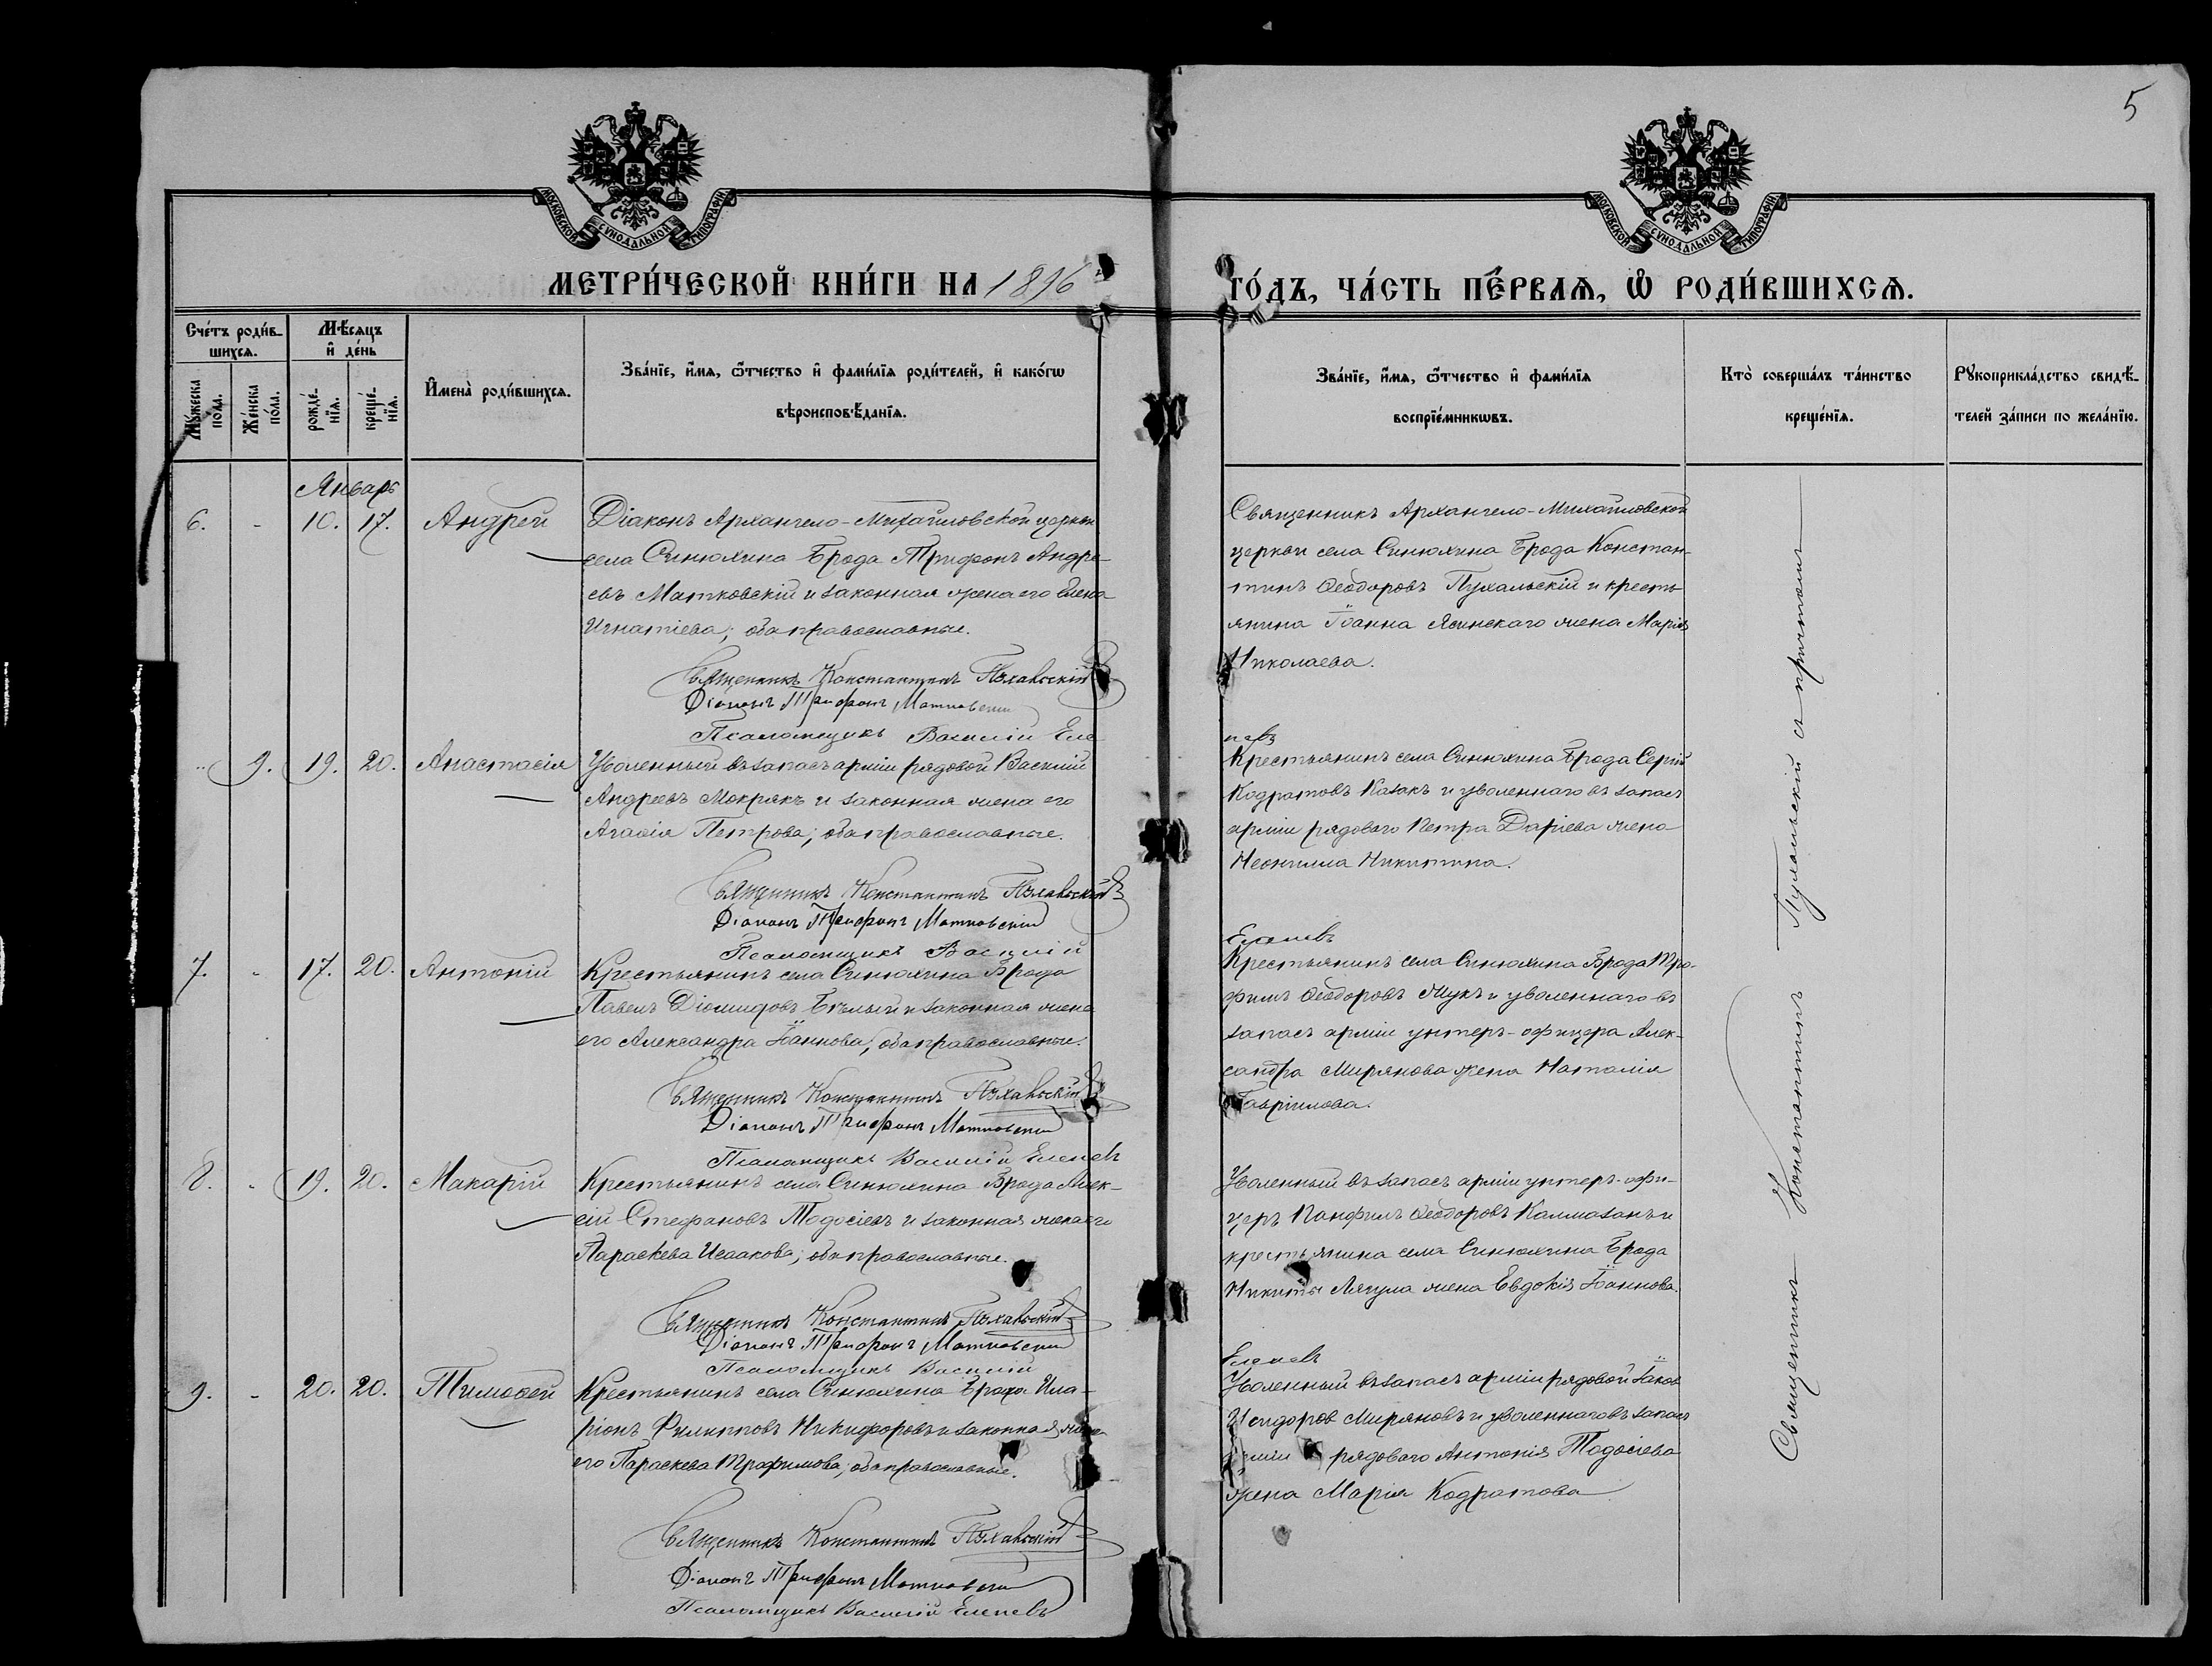 5
МОСКОВСКОЙ СУНОДАЛЬНОЙ ТИПОГРАФІИ
МОСКОВСКОЙ СУНОДАЛЬНОЙ ТИПОГРАФІИ
МЕТРИ́ЧЕСКОЙ КНИ́ГИ НА 1896
ГО́ДЪ, ЧА́СТЬ ПЕ́РВАѦ, Ѡ РОДИ́ВШИХСѦ.
Сче́тъ роди́в-
шихсѧ.
Мѹ́жеска по́ла.
Же́нска по́ла.
Мѣ́сѧцъ
и де́нь
рожде́-нїѧ.
креще́-нїѧ.
Имена̀ роди́вшихсѧ.
Зва́нїе, и́мѧ, ѻ́тчество и фами́лїѧ роди́телей, и како́гѡ
вѣроисповѣ́данїѧ.
Зва́нїе, и́мѧ, ѻ́тчество и фами́лїѧ
воспрїе́мникѡвъ.
Кто̀ соверша́лъ та́инство
креще́нїѧ.
Рѹкоприкла́дство свидѣ́-
телей за́писи по жела́нїю.
Январь
6. - 10. 17. Андрей
Діаконъ Архангело-Михайловской церкви
села Синюхина Брода Трифонъ Андре-
евъ Матковскій и законная жена его Елена
Игнатіева; оба православные.
Священникъ Константинъ Пухальскій
Діаконъ Трифонъ Матковскій
Псаломщикъ Василій Еле-
Священникъ Архангело-Михайловской
церкви села Синюхина Брода Констан-
тинъ Ѳеодоровъ Пухальскій и кресть-
янина Іоанна Ясинскаго жена Марія
Николаева.
невъ
- 9. 19. 20. Анастасія
Уволенный въ запасъ арміи рядовой Василій
Андреевъ Мокрякъ и законная жена его
Агафія Петрова; оба православные.
Священникъ Константинъ Пухальскій
Діаконъ Трифонъ Матковскій
Псаломщикъ Василій
Крестьянинъ села Синюхина Брода Сергій
Кодратовъ Казакъ и уволеннаго въ запасъ
арміи рядового Петра Даріева жена
Неонилла Никитина.
Еленевъ
7. - 17. 20. Антоній
Крестьянинъ села Синюхина Брода
Павелъ Діомидовъ Бѣлый и законная жена
его Александра Іоаннова; оба православные.
Священникъ Константинъ Пухальскій
Діаконъ Трифонъ Матковскій
Псаломщикъ Василій Еленевъ
Крестьянинъ села Синюхина Брода Тро-
фимъ Ѳеодоровъ Жукъ и уволеннаго въ
запасъ арміи унтеръ-офицера Алек-
сандра Мирянова жена Наталія
Гавріилова.
8. - 19. 20. Макарій
Крестьянинъ села Синюхина Брода Алек-
сій Стефановъ Тодосіевъ и законная жена его
Параскева Исаакова; оба православные.
Священникъ Константинъ Пухальскій
Діаконъ Трифонъ Матковскій
Псаломщикъ Василій
Уволенный въ запасъ арміи унтеръ-офи-
церъ Панфилъ Ѳеодоровъ Калмазанъ и
крестьянина села Синюхина Брода
Никиты жена Евдокія Іоаннова.
Еленевъ
9. - 20. 20. Тимоѳей
Крестьянинъ села Синюхина Брода Ила-
ріонъ Филипповъ Никифоровъ и законная жена
его Параскева Трофимова; оба православные.
Священникъ Константинъ Пухальскій
Діаконъ Трифонъ Матковскій
Псаломщикъ Василій Еленевъ
Уволенный въ запасъ арміи рядовой Іаковъ
Исидоров Миряновъ и уволеннаго въ запасъ
арміи рядового Антонія Тодосіева
жена Марія Кодратова
Священникъ Константинъ Пухальскій съ причтомъ